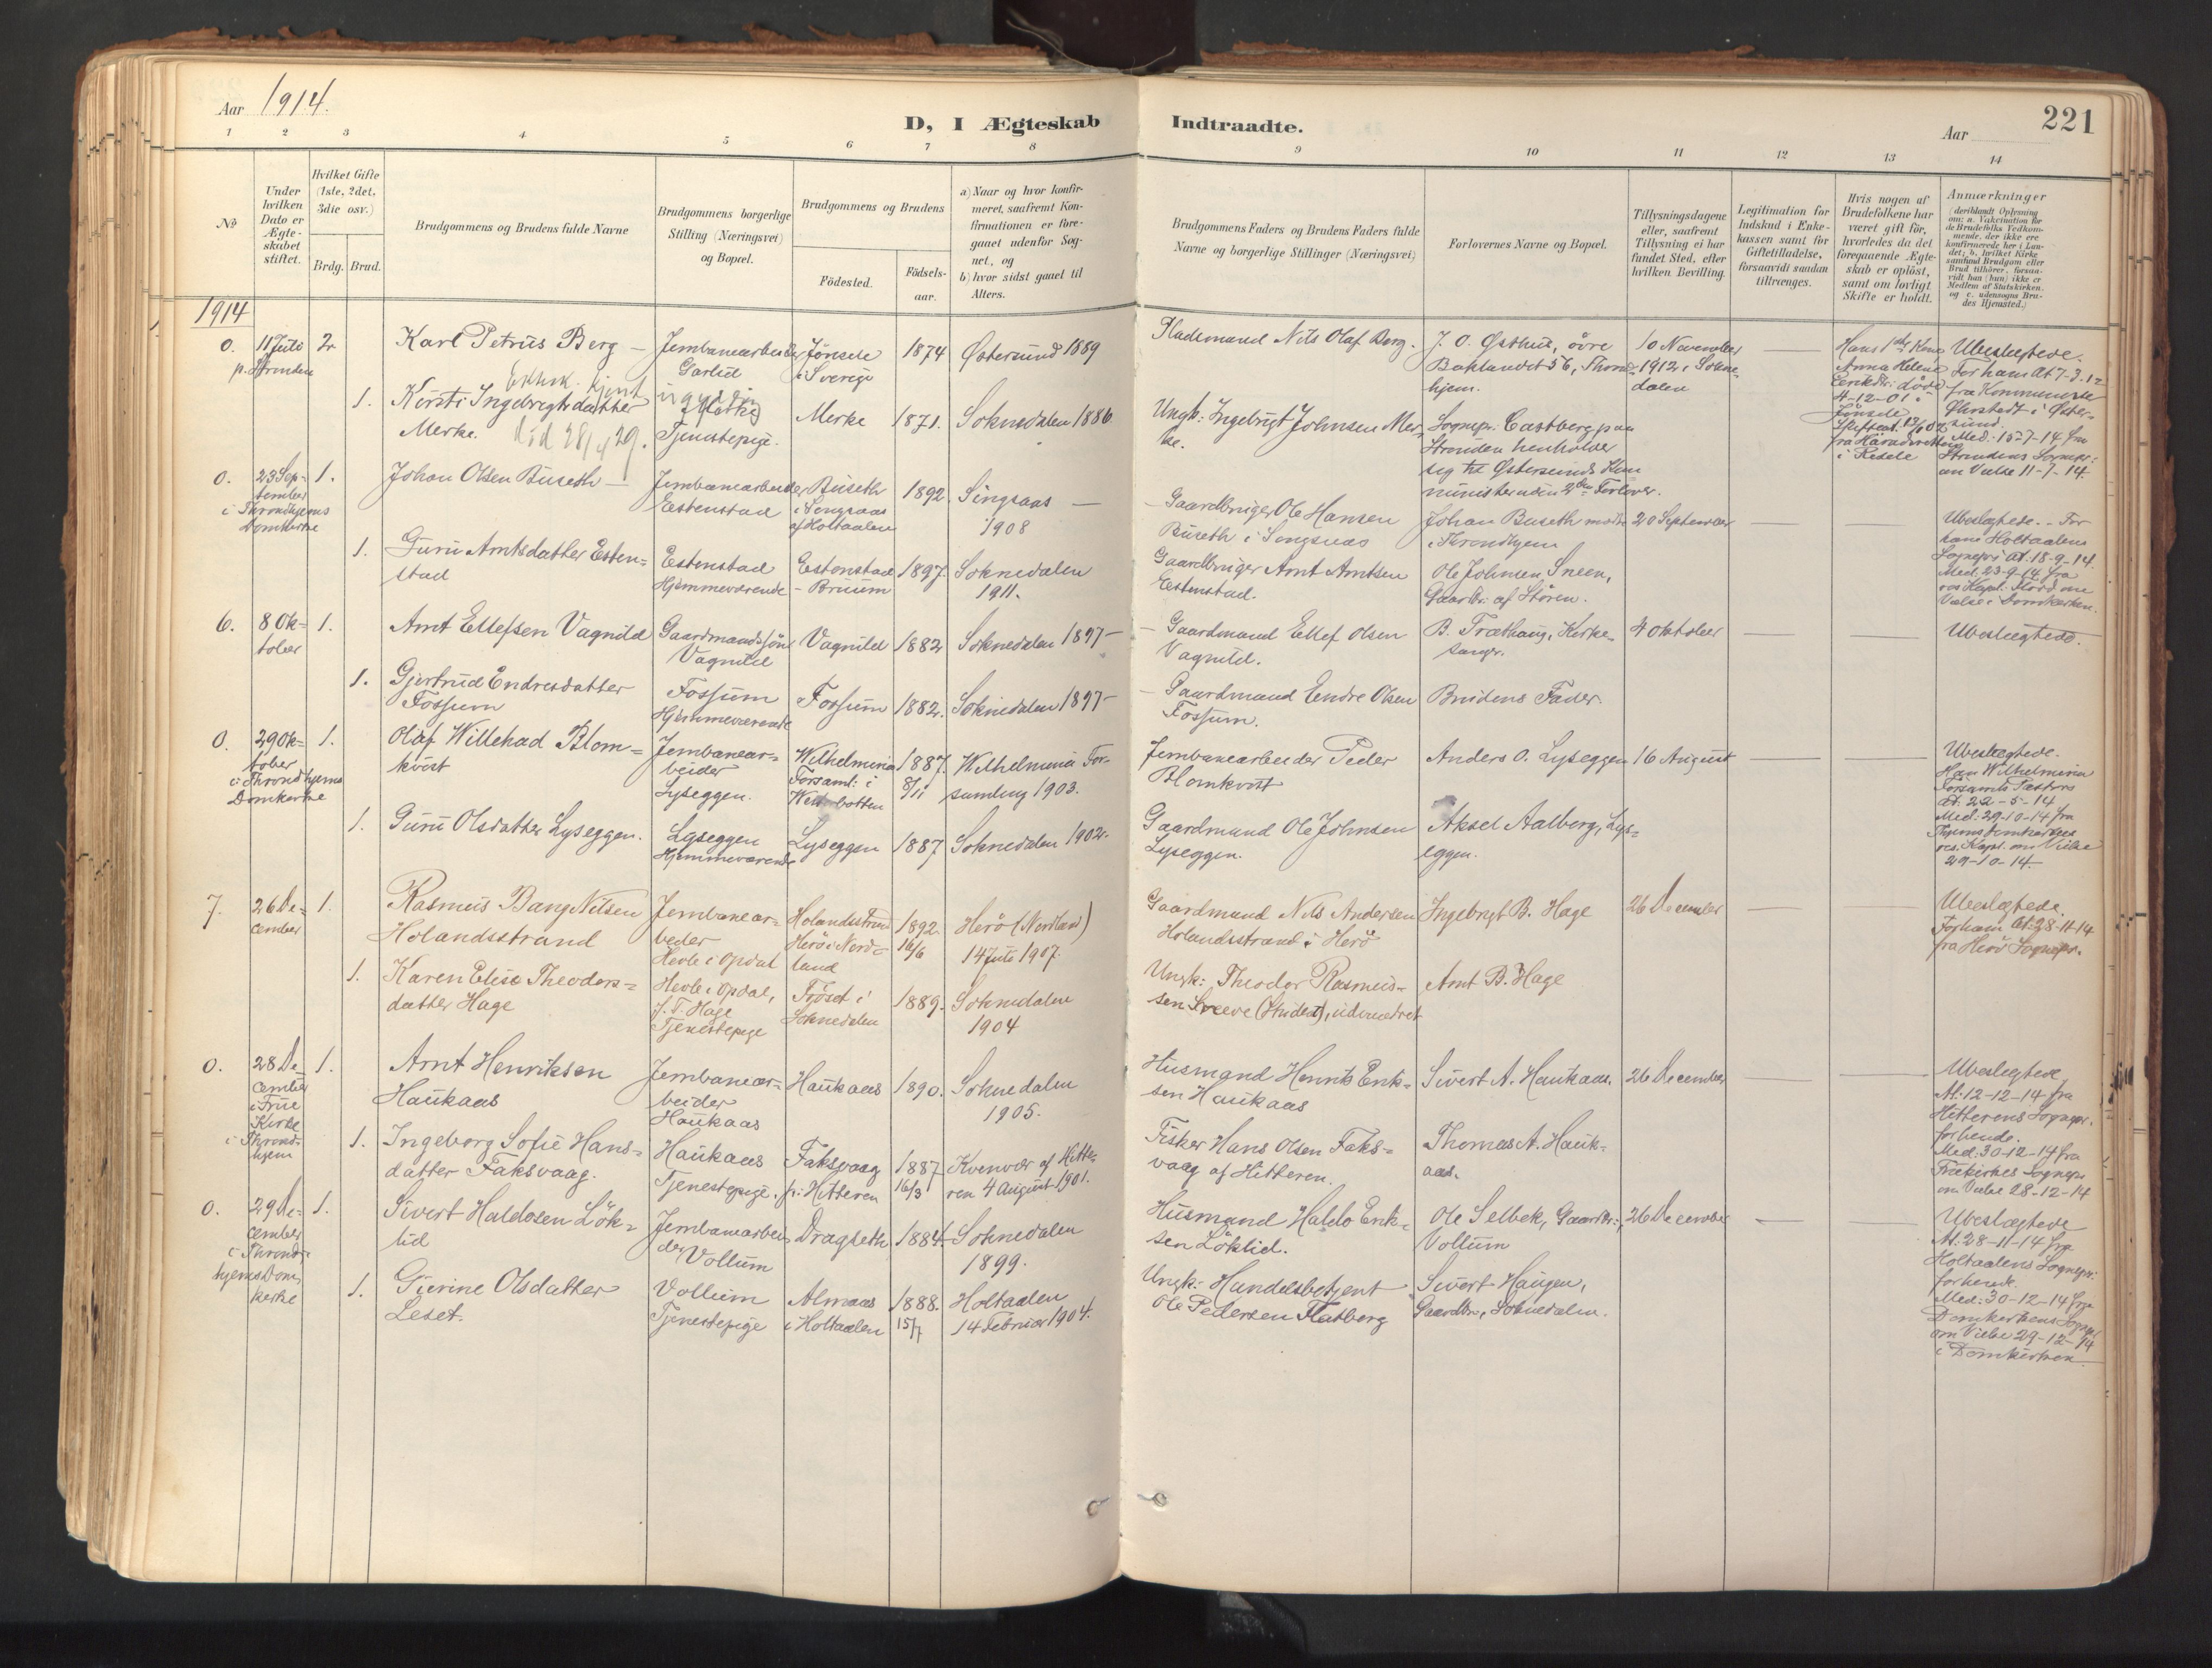 Aar 1914.
D, I Ægteskab
Indtraadte.
Aar
221
1 2 3 4 5 6 7 8 9 10 11 12 13 14
No
Under
hvilken
Dato er
Ægte-
skabet
stiftet.
Hvilket Gifte
(1ste, 2det,
3die osv.)
Brdg.
Brud.
Brudgommens og Brudens fulde Navne
Brudgommens borgerlige
Stilling (Næringsvei)
og Bopæl.
Brudgommens og Brudens
Fødested.
Fødsels-
aar.
a) Naar og hvor konfir-
meret, saafremt Kon-
firmationen er fore-
gaaet udenfor Sog-
net, og
b) hvor sidst gaaet til
Alters.
Brudgommens Faders og Brudens Faders fulde
Navne og borgerlige Stillinger (Næringsvei)
Forlovernes Navne og Bopæl.
Tillysningsdagene
eller, saafremt
Tillysning ei har
fundet Sted, efter
hvilken Bevilling.
Legitimation for
Indskud i Enke-
kassen samt for
Giftetilladelse,
forsaavidt saadan
tiltrænges.
Hvis nogen af
Brudefolkene har
været gift før,
hvorledes da det
foregaaende Ægte-
skab er opløst,
samt om lovligt
Skifte er holdt.
Anmærkninger
(deriblandt Oplysning
om: a. Vakcination for
de Brudefolks Vedkom-
mende, der ikke ere
konfirmerede her i Lan-
det; b. hvilket Kirke
samfund Brudgom eller
Brud tilhører, forsaa-
vidt han (hun) ikke er
Medlem af Statskirken.
og c. udensogns Bru-
des Hjemsted.)
1914
0.
11 Juli
p. Strinden
2.
Karl Petrus Berg
Jernbanearbeider
Garlid
Jönsele
i Sverige
1874
Østersund 1889
Pladsmand Nils Olaf Berg.
J. O. Østhus, övre
Baklandet 56, Thrond-
hjem.
10 November
1912 i Sokne-
dalen
Hans 1ste Kone
Anna Helene
døde
4-12-01 i
Jönsele
i Resele
Ubeslægtede.
For ham At. 7-3-12
fra
i Øster-
sund.
Med. 15-7-14 fra
Strindens Sognepr.
om Vielse 11-7-14.
1.
Kirsti Ingebrigtsdatter
Merke.
död 28/4 29.
Merke
Tjenestepige.
Merke
1871.
Soknedalen 1886
Ungk: Ingebrigt Johnsen Mer-
ke.
Sognepr. Castberg paa
Strinden henholder
sig til Østersunds Kom
minister uden 2den Forlover.
0.
23 Sep-
tember
i Throndhjems
Domkirke
1.
Johan Olsen Buseth
Jernbanearbeider
Estenstad
Buseth
i Singsaas
af Holtaalen
1892.
Singsaas
1908
Gaardbruger Ole Hansen
Buseth i Singsaas
Johan Buseth
i Throndhjem
20 September
Ubeslægtede. - For
ham Holtaalens
Sognepr. At. 18-9-14.
Med. 23-9-14 fra
Vielse i Domkirken.
1.
Guru Arntsdatter Esten-
stad
Estenstad
Hjemmeværende
Estenstad
1897.
Soknedalen
1911.
Gaardbruger Arnt Arntsen
Estenstad.
Ole Johnsen Sneen,
Gaardbr. af Støren.
6.
8 Ok-
tober
1.
Arnt Ellefsen Vagnild
Gaardmandssøn
Vagnild
Vagnild
1882
Soknedalen 1897
Gaardmand Ellef Olsen
Vagnild.
B. Træthaug, Kirke-
sanger.
4 Oktober
Ubeslægtede.
1.
Gjertrud Endresdatter
Fossum
Fossum
Hjemmeværende
Fossum
1882.
Soknedalen 1897
Gaardmand Endre Olsen
Fossum.
Brudens Fader.
0.
29 Ok-
tober
i Throndhjems
Domkirke
1.
Olaf Willehad Blom-
kvist
Jernbanear-
beider
Lyseggen.
Wilhelmina
Forsaml. i
Westerbotten
1887.
8/11
Wilhelmina For-
samling 1903.
Jernbanearbeider Peder
Blomkvist
Anders O. Lyseggen
16 August
Ubeslægtede.
Han Wilhelmina
Forsamls Pastors
At. 22-5-14
Med. 29-10-14 fra
Thjems Domkirkes
res. Kapl. om Vielse
29-10-14
1.
Guru Olsdatter Lyseggen.
Lyseggen
Hjemmeværende
Lyseggen
1887.
Soknedalen 1902.
Gaardmand Ole Johnsen
Lyseggen.
Aksel Aalberg, Lys-
eggen.
7.
26 De-
cember
1.
Rasmus Bang Nilsen
Holandsstrand
Jernbanear-
beder
Hevle i Opdal
Holandsstrand
Herö i Nord-
land
1892.
16/6
Herö (Nordland)
14 Juli 1907.
Gaardmand Nils Andersen
Holandsstrand i Herö
Ingebrigt B. Hage
26 December
Ubeslægtede.
For ham At. 28-11-14
fra Herö Sognepr.
1.
Karen Elise Theodors-
datter Hage
Hevle i Opdal,
J. T. Hage
Tjenestepige
Frøset i
Soknedalen
1889.
Soknedalen
1904
Ungk: Theodor Rasmus-
sen (Student), udvandret
Arnt B. Hage
0.
28 De-
cember
i Frue
Kirke
i Thrond-
hjem
1.
Arnt Henriksen
Haukaas
Jernbanear-
beider
Haukaas
Haukaas
1890.
Soknedalen
1905.
Husmand Henrik Erik-
sen Haukaas
Sivert A. Haukaas.
26 December
Ubeslægtede
At. 12-12-14 fra
Hitterens Sognepr.
for hende.
Med. 30-12-14 fra
Fruekirkes Sognepr
om Vielse 28-12-14
1.
Ingeborg Sofie Hans-
datter Faksvaag.
Haukaas
Tjenestepige.
Faksvaag
p. Hitteren
1887
16/3
Kvenvær af Hitte-
ren 4 August 1901.
Fisker Hans Olsen Faks-
vaag af Hitteren.
Thomas A. Hauk-
aas.
0.
29 De-
cember
i Thrond-
hjems Dom
kirke
1.
Sivert Haldosen Lök-
lid
Jernbanearbei-
der Vollum
Dragseth
1884.
Soknedalen
1899.
Husmand Haldo Erik-
sen Löklid.
Ole Selbek, Gaardbr.,
Vollum
26 December
Ubeslægtede
At. 28-11-14 fra
Holtaalens Sognepr.
for hende.
Med. 30-12-14 fra
Domkirkens Sognepr
om Vielse 29-12-14
i Domkirken.
1.
Gurine Olsdatter
Leset.
Vollum
Tjenestepige
Almaas
i Holtaalen
1888.
15/7
Holtaalen
14 Februar 1904.
Ungk: Handelsbetjent
Ole Pedersen Flatberg
Sivert Haugen,
Gaardbr., Soknedalen.